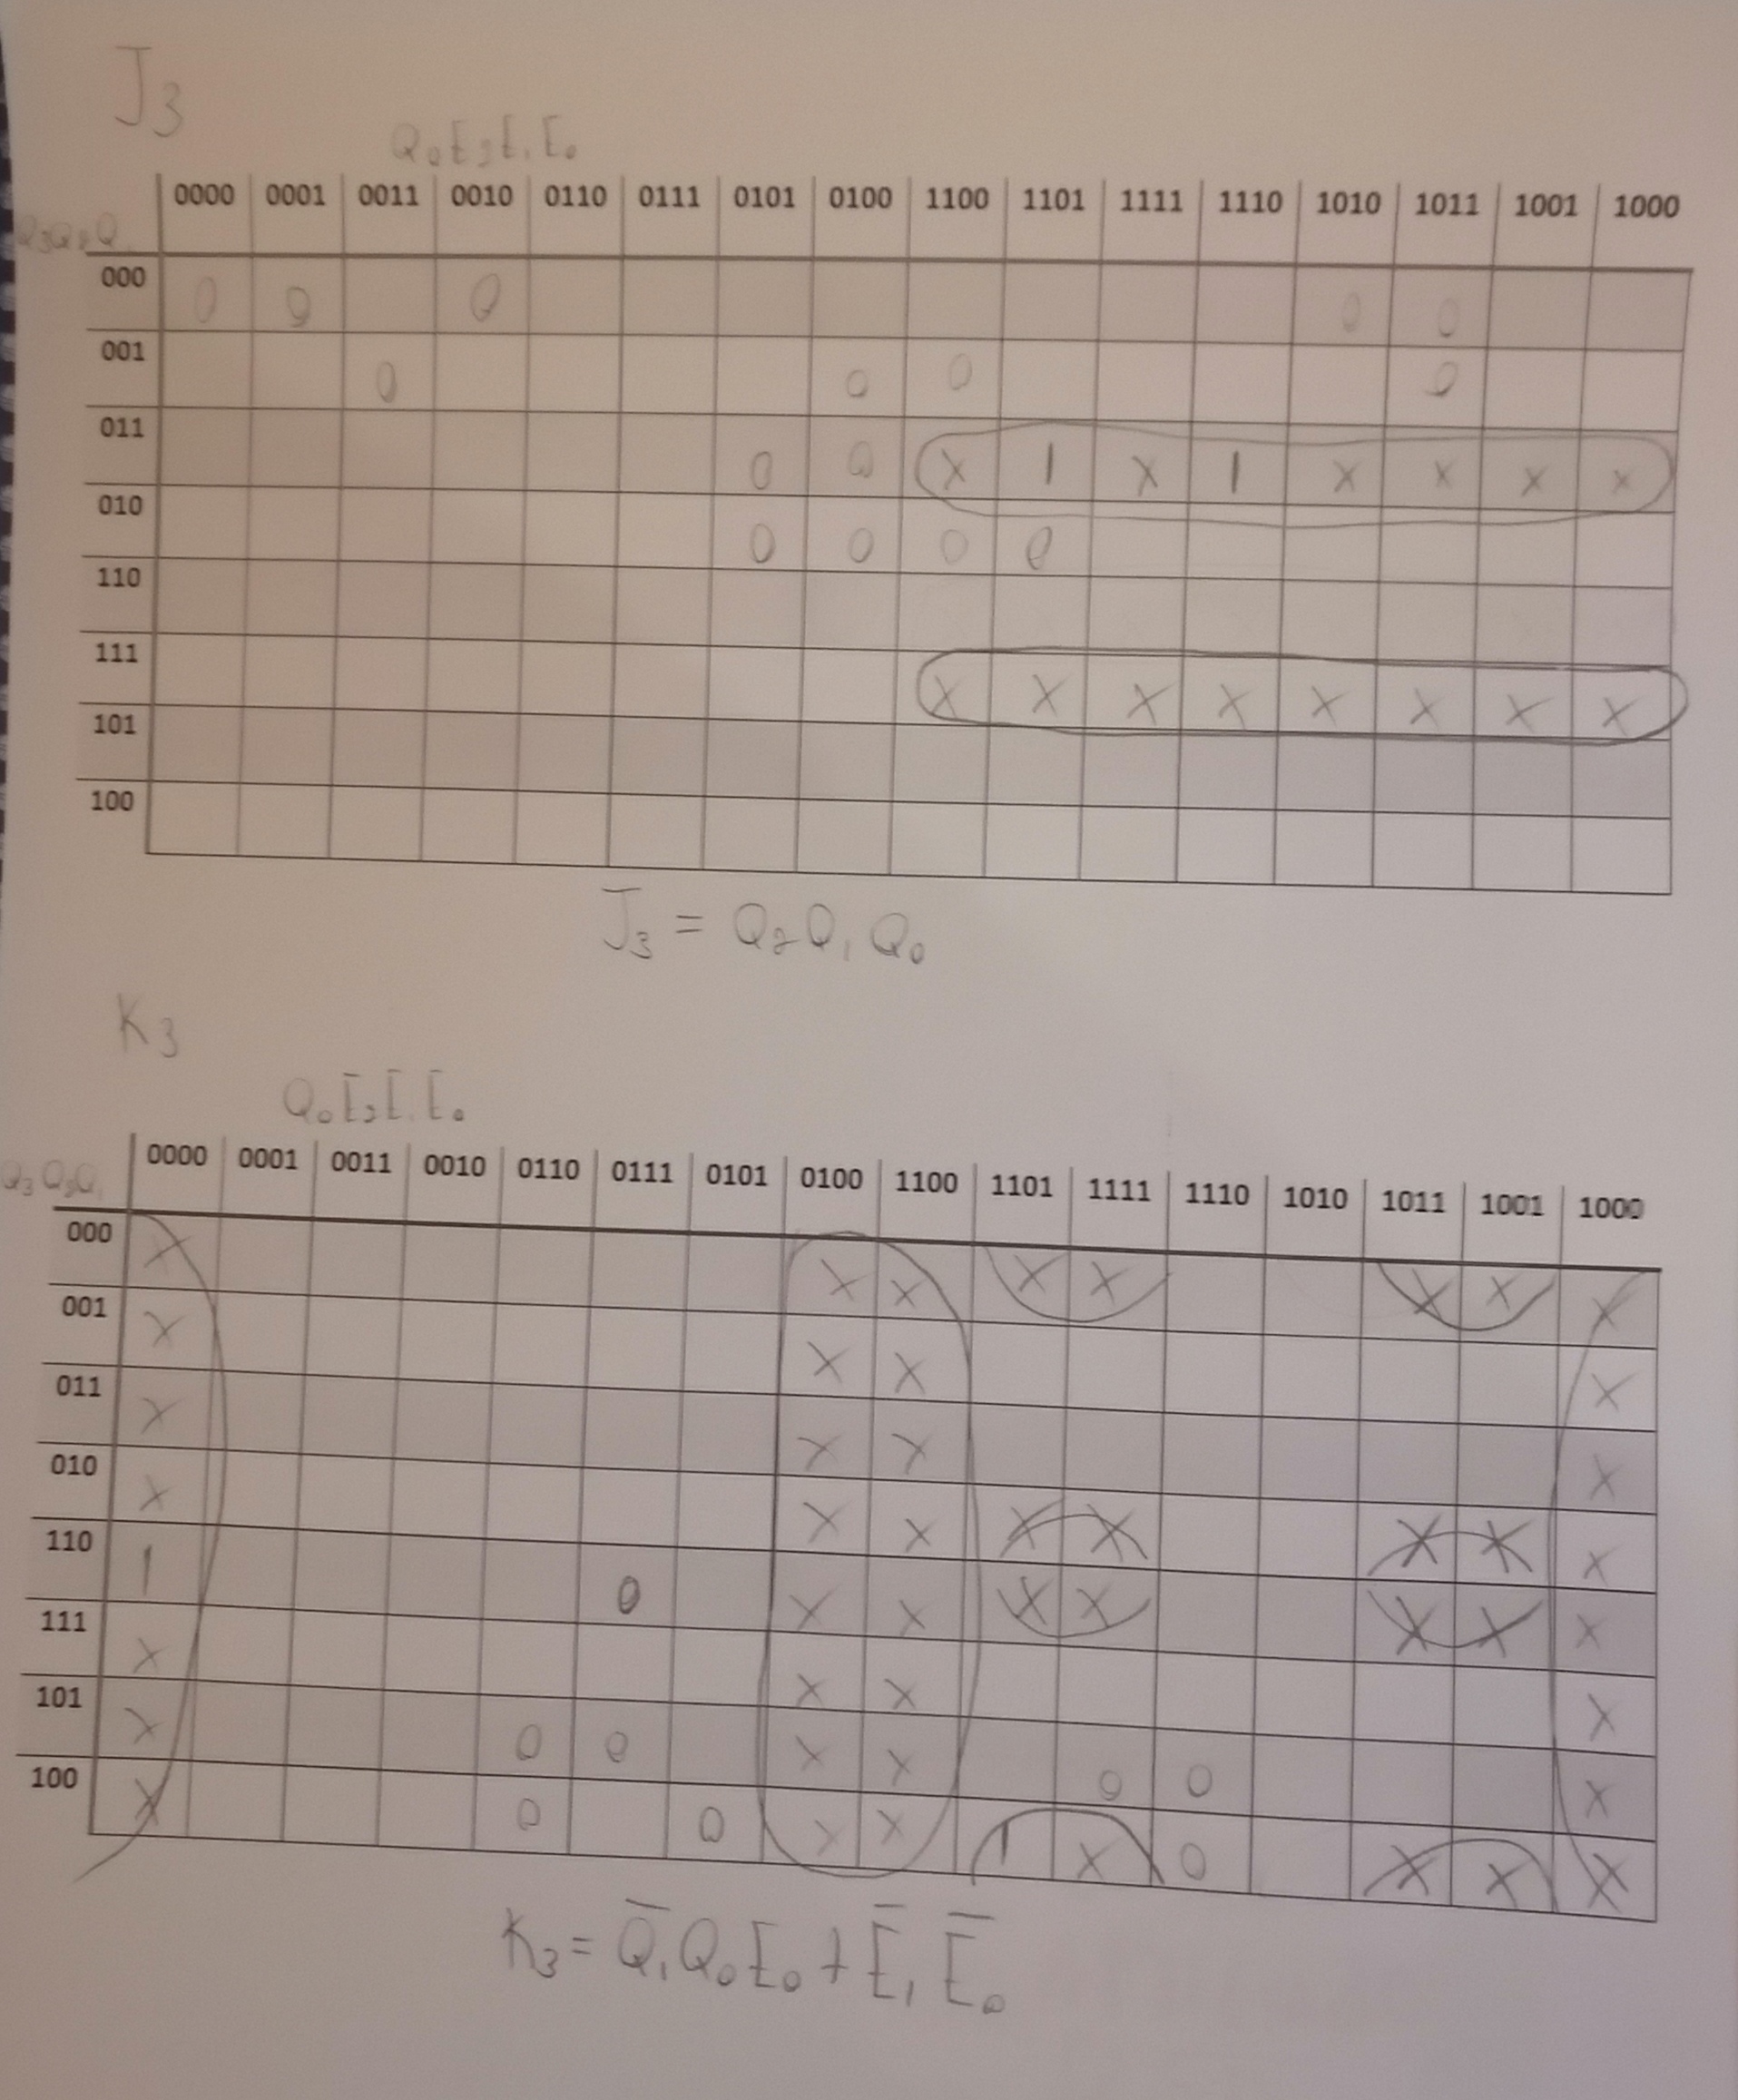 J₃
Q₀E₂E₁E₀
0000 0001 0011 0010 0110 0111 0101 0100 1100 1101 1111 1110 1010 1011 1001 1000
Q₃Q₂Q₁
000 0 0 0 0 0
001 0 0 0 0
011 0 0 X 1 X 1 X X X X
010 0 0 0 0
110
111 X X X X X X X X
101
100
J₃ = Q₂Q₁Q₀
K₃
Q₀E₂E₁E₀
0000 0001 0011 0010 0110 0111 0101 0100 1100 1101 1111 1110 1010 1011 1001 1000
Q₃Q₂Q₁
000 X X X X X X X X
001 X X X X
011 X X X X
010 X X X X X X X X
110 1 0 X X X X X X X
111 X X X X
101 X 0 0 X X 0 0 X
100 X 0 0 X X 1 X 0 X X X
K₃ = Q̅₁Q₀E₀ + E̅₁E̅₀